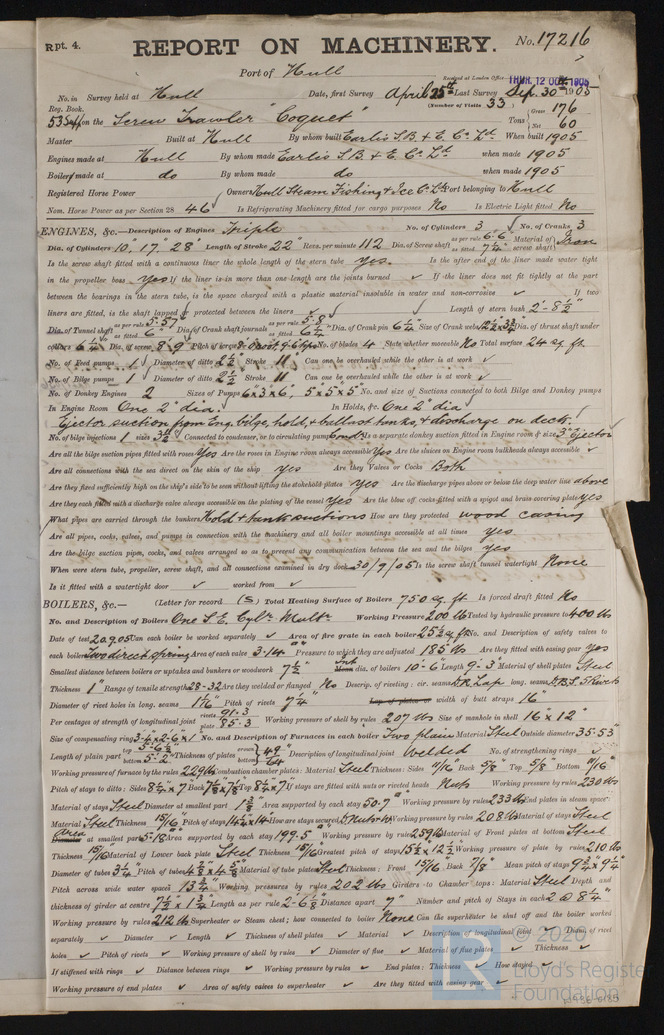 Rpt. 4.
REPORT ON MACHINERY. No. 17216
Port of Hull
Received at London Office THUR. 12 OCT 1905
No. in Survey held at Hull Date, first Survey April 25th Last Survey Sep. 30th 1905
Reg. Book. (Number of Visits 33)
on the Screw Trawler "Coquet" Tons { Gross 176 Net 60
Master Built at Hull By whom built Earle's S.B. & E. Co. Ld. When built 1905
Engines made at Hull By whom made Earle's S.B. & E. Co. Ld. when made 1905
Boilers made at do By whom made do when made 1905
Registered Horse Power Owners Hull Steam Fishing & Ice Co. Ld. Port belonging to Hull
Nom. Horse Power as per Section 28 46 Is Refrigerating Machinery fitted for cargo purposes No Is Electric Light fitted No
ENGINES, &c.—Description of Engines Triple No. of Cylinders 3 No. of Cranks 3
Dia. of Cylinders 10" 17" 28" Length of Stroke 22" Revs. per minute 112 Dia. of Screw shaft as per rule 6·6" as fitted 7¼" Material of screw shaft Iron
Is the screw shaft fitted with a continuous liner the whole length of the stern tube yes. Is the after end of the liner made water tight
in the propeller boss yes If the liner is in more than one length are the joints burned ✓ If the liner does not fit tightly at the part
between the bearings in the stern tube, is the space charged with a plastic material insoluble in water and non-corrosive ✓ If two
liners are fitted, is the shaft lapped or protected between the liners ✓ Length of stern bush 2'-8½"
Dia. of Tunnel shaft as per rule 5·57" as fitted 6" Dia. of Crank shaft journals as per rule 5·8 as fitted 6¼" Dia. of Crank pin 6¼" Size of Crank webs Dia. of thrust shaft under
collars 6¼" Dia. of screw 8'-9" Pitch of screw No. of blades 4 State whether moveable No Total surface 24 sq. ft.
No. of Feed pumps 1 Diameter of ditto 2½" Stroke 11" Can one be overhauled while the other is at work ✓
No. of Bilge pumps 1 Diameter of ditto 2½" Stroke 11 Can one be overhauled while the other is at work ✓
No. of Donkey Engines 2 Sizes of Pumps 6"x3"x6", 5"x5"x5" No. and size of Suctions connected to both Bilge and Donkey pumps
In Engine Room One 2" dia. In Holds, &c. One 2" dia
Ejector suction from Eng. bilge, hold, & ballast tanks, & discharge on deck.
No. of bilge injections 1 sizes 3½" Connected to condenser, or to circulating pump Cond. Is a separate donkey suction fitted in Engine room & size 3" Ejector
Are all the bilge suction pipes fitted with roses Yes Are the roses in Engine room always accessible Yes Are the sluices on Engine room bulkheads always accessible ✓
Are all connections with the sea direct on the skin of the ship yes Are they Valves or Cocks Both
Are they fixed sufficiently high on the ship's side to be seen without lifting the stokehold plates Yes Are the discharge pipes above or below the deep water line above
Are they each fitted with a discharge valve always accessible on the plating of the vessel Yes Are the blow off cocks fitted with a spigot and brass covering plate yes
What pipes are carried through the bunkers Hold & tank suctions How are they protected wood casing
Are all pipes, cocks, valves, and pumps in connection with the machinery and all boiler mountings accessible at all times yes.
Are the bilge suction pipes, cocks, and valves arranged so as to prevent any communication between the sea and the bilges yes
When were stern tube, propeller, screw shaft, and all connections examined in dry dock 30/9/05 Is the screw shaft tunnel watertight None
Is it fitted with a watertight door ✓ worked from ✓
BOILERS, &c.— (Letter for record (S)) Total Heating Surface of Boilers 750 sq. ft Is forced draft fitted No
No. and Description of Boilers One S. E. Cylr. Mult. Working Pressure 200 lbs Tested by hydraulic pressure to 400 lbs
Date of test 20.9.05 Can each boiler be worked separately ✓ Area of fire grate in each boiler 25½ sq. ft. No. and Description of safety valves to
each boiler Two direct spring Area of each valve 3·14 Pressure to which they are adjusted 185 lbs Are they fitted with easing gear Yes
Smallest distance between boilers or uptakes and bunkers or woodwork 7½" Int dia. of boilers 10'-6" Length 9'-3" Material of shell plates Steel
Thickness 1" Range of tensile strength 28-32 Are they welded or flanged No Descrip. of riveting: cir. seams D.R. Lap long. seams D.B.S. 5 Rivets
Diameter of rivet holes in long. seams 1 1/16" Pitch of rivets 7¼" Lap of plates or width of butt straps 16"
Per centages of strength of longitudinal joint rivets 91·3 plate 85·3 Working pressure of shell by rules 207 lbs Size of manhole in shell 16"x12"
Size of compensating ring No. and Description of Furnaces in each boiler Two plain Material Steel Outside diameter 35·53"
Length of plain part top 5'-6½" bottom 5'-2" Thickness of plates crown bottom 49/64 Description of longitudinal joint Welded No. of strengthening rings ✓
Working pressure of furnace by the rules 229 lbs Combustion chamber plates: Material Steel Thickness: Sides 11/16" Back 5/8" Top 5/8" Bottom 11/16"
Pitch of stays to ditto: Sides 8¾"x7 Back Top If stays are fitted with nuts or riveted heads Nuts Working pressure by rules 230 lbs
Material of stays Steel Diameter at smallest part 1⅜" Area supported by each stay 50·7" Working pressure by rules 233 lbs End plates in steam space:
Material Steel Thickness 15/16" Pitch of stays How are stays secured Working pressure by rules 208 lbs Material of stays Steel
Area at smallest part 5·18" Area supported by each stay 199·5" Working pressure by rules 259 lbs Material of Front plates at bottom Steel
Thickness 15/16" Material of Lower back plate Steel Thickness 15/16" Greatest pitch of stays 15½"x12½" Working pressure of plate by rules 210 lbs
Diameter of tubes 3¼" Pitch of tubes Material of tube plates Steel Thickness: Front 15/16" Back 7/8" Mean pitch of stays 9¾"x9¼"
Pitch across wide water spaces 13¾" Working pressures by rules 202 lbs Girders to Chamber tops: Material Steel Depth and
thickness of girder at centre 7½"x1¾" Length as per rule 2'-6⅛" Distance apart 7" Number and pitch of Stays in each 2 @ 8¼"
Working pressure by rules 212 lbs Superheater or Steam chest; how connected to boiler None Can the superheater be shut off and the boiler worked
separately ✓ Diameter ✓ Length ✓ Thickness of shell plates ✓ Material ✓ Description of longitudinal joint ✓ Diam. of rivet
holes ✓ Pitch of rivets ✓ Working pressure of shell by rules ✓ Diameter of flue ✓ Material of flue plates ✓ Thickness ✓
If stiffened with rings ✓ Distance between rings ✓ Working pressure by rules ✓ End plates: Thickness ✓ How stayed ✓
Working pressure of end plates ✓ Area of safety valves to superheater ✓ Are they fitted with easing gear ✓
© 2020
Lloyd's Register
Foundation